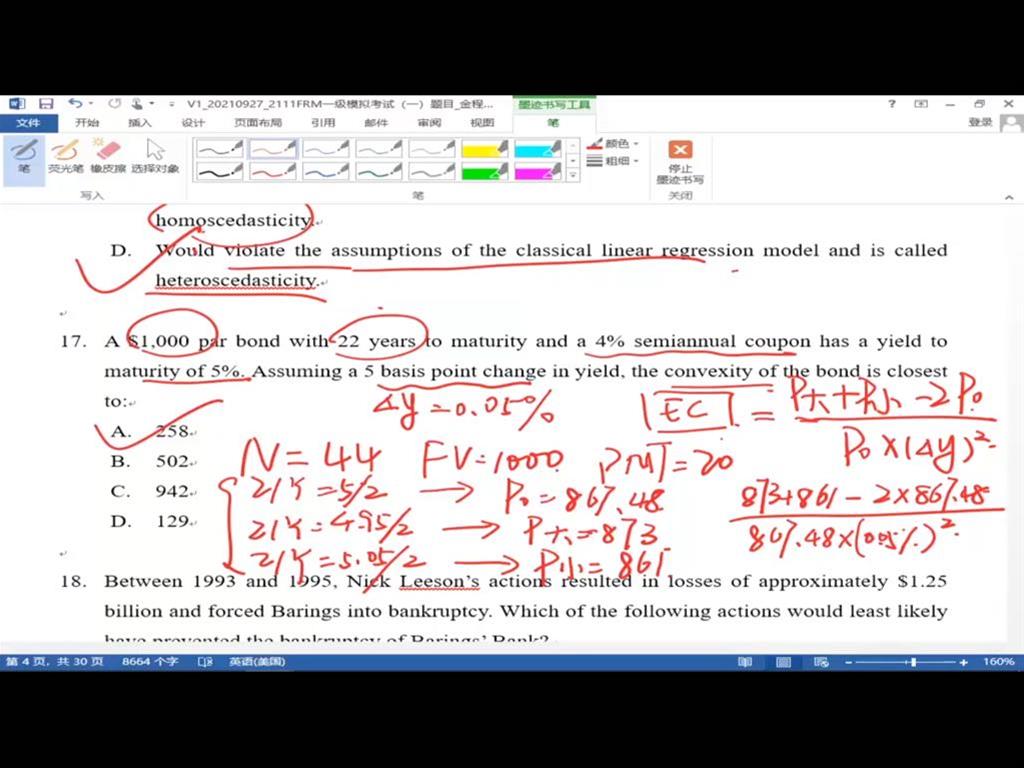 V1_20210927_2111FRM一级模拟考试（一）题目_金程...
墨迹书写工具
?
文件 开始 插入 设计 页面布局 引用 邮件 审阅 视图 笔 登录
笔 荧光笔 橡皮擦 选择对象 颜色 粗细 停止 墨迹书写
写入 笔 关闭
homoscedasticity.
D. Would violate the assumptions of the classical linear regression model and is called
heteroscedasticity.
17. A $1,000 par bond with 22 years to maturity and a 4% semiannual coupon has a yield to
maturity of 5%. Assuming a 5 basis point change in yield, the convexity of the bond is closest
to:
△y = 0.05%
EC = P大+P小-2P0
P0×(△y)²
A. 258
B. 502
C. 942
D. 129
N=44 FV=1000 PMT=20
I/Y=5/2 → P0=867.48
I/Y=4.95/2 → P大=873
I/Y=5.05/2 → P小=861
873+861-2×867.48
867.48×(0.05%)²
18. Between 1993 and 1995, Nick Leeson's actions resulted in losses of approximately $1.25
billion and forced Barings into bankruptcy. Which of the following actions would least likely
have prevented the bankruptcy of Barings' Bank?
第 4 页，共 30 页 8664 个字 英语(美国) 160%